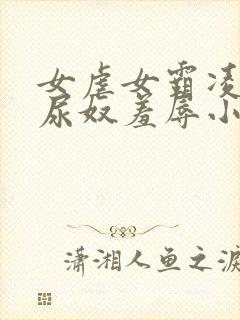 女虐女霸凌
尿奴羞辱小
潇湘人鱼之泪